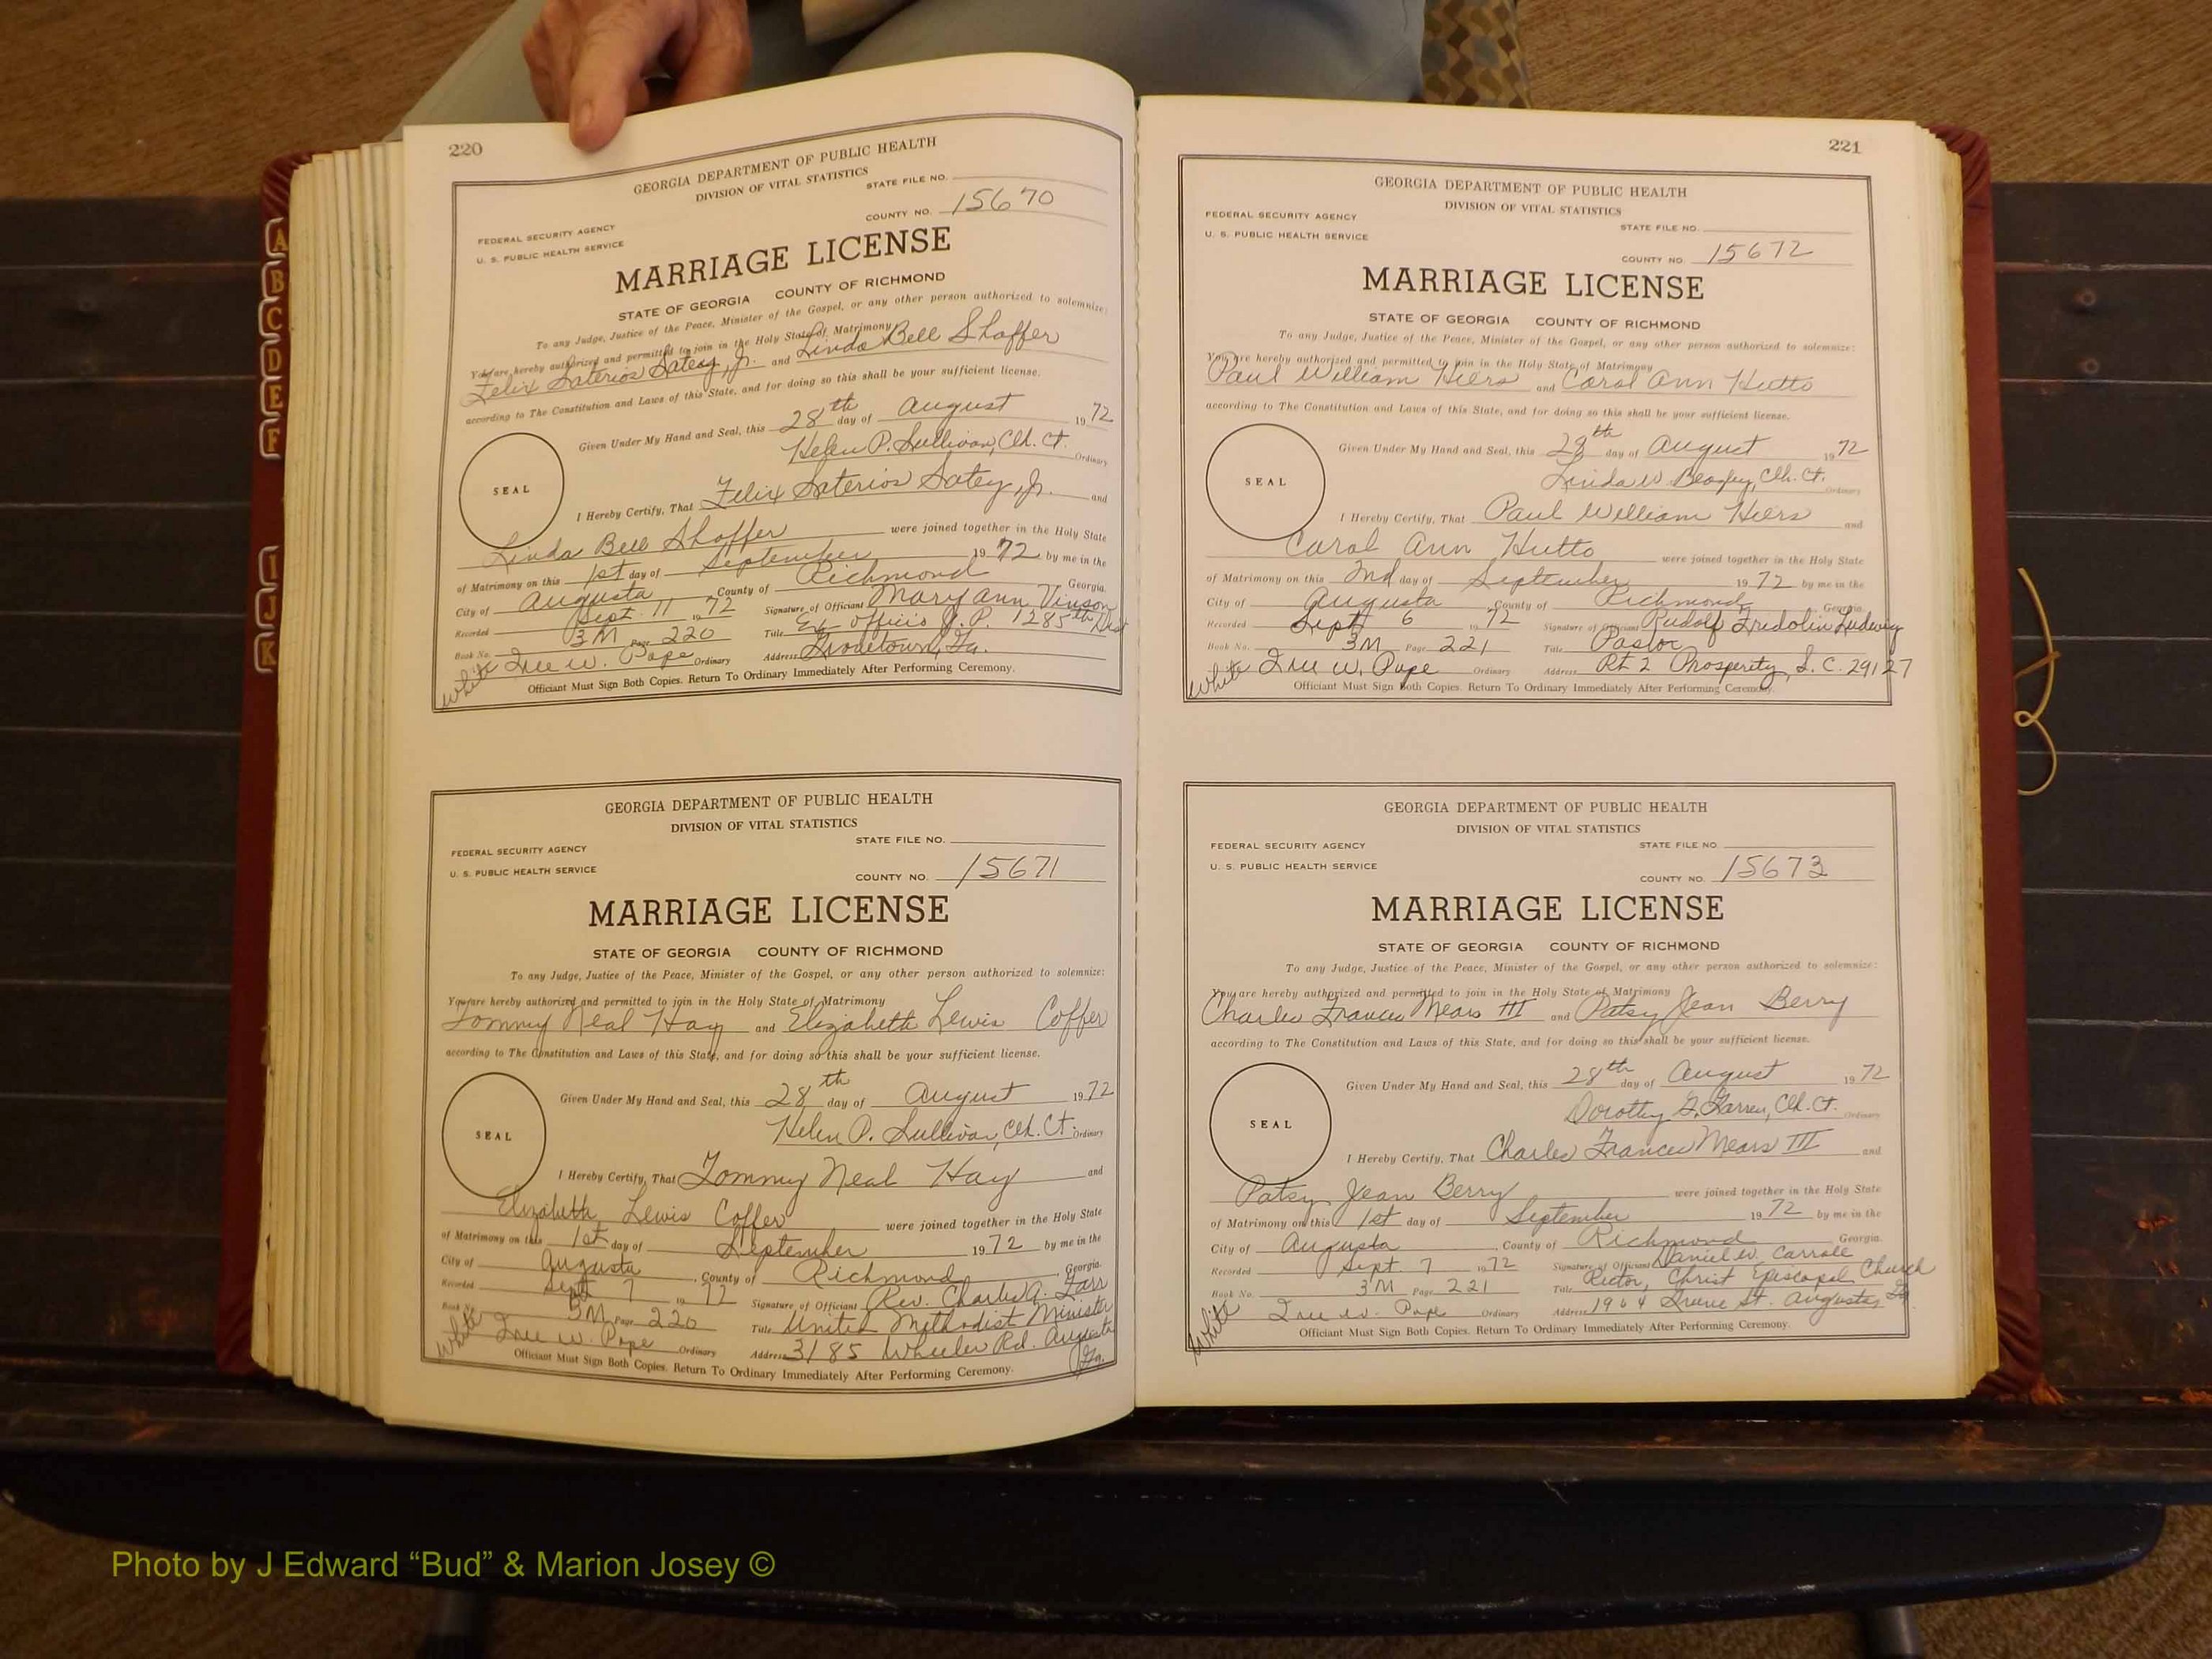 220
GEORGIA DEPARTMENT OF PUBLIC HEALTH
DIVISION OF VITAL STATISTICS
STATE FILE NO.
COUNTY NO. 15670
FEDERAL SECURITY AGENCY
U. S. PUBLIC HEALTH SERVICE
MARRIAGE LICENSE
STATE OF GEORGIA COUNTY OF RICHMOND
To any Judge, Justice of the Peace, Minister of the Gospel, or any other person authorized to solemnize:
You are hereby authorized and permitted to join in the Holy State of Matrimony
Felix Saterios Satey, Jr. and Linda Bell Shaffer
according to The Constitution and Laws of this State, and for doing so this shall be your sufficient license.
Given Under My Hand and Seal, this 28th day of August 1972
Helen P. Sullivan, Clk. Ct. Ordinary
SEAL
I Hereby Certify, That Felix Saterios Satey, Jr. and
Linda Bell Shaffer were joined together in the Holy State
of Matrimony on this 1st day of September 1972 by me in the
City of Augusta County of Richmond Georgia.
Recorded Sept. 11 1972 Signature of Officiant Mary Ann Vinson
Book No. 3M Page 220 Title Ex officio J. P. 1285th Dist
White Ordinary Address Grovetown, Ga.
Officiant Must Sign Both Copies. Return To Ordinary Immediately After Performing Ceremony.
GEORGIA DEPARTMENT OF PUBLIC HEALTH
DIVISION OF VITAL STATISTICS
STATE FILE NO.
FEDERAL SECURITY AGENCY
U. S. PUBLIC HEALTH SERVICE
COUNTY NO. 15671
MARRIAGE LICENSE
STATE OF GEORGIA COUNTY OF RICHMOND
To any Judge, Justice of the Peace, Minister of the Gospel, or any other person authorized to solemnize:
You are hereby authorized and permitted to join in the Holy State of Matrimony
Tommy Neal Hay and Elizabeth Lewis Coffer
according to The Constitution and Laws of this State, and for doing so this shall be your sufficient license.
Given Under My Hand and Seal, this 28th day of August 1972
Helen P. Sullivan, Clk. Ct. Ordinary
SEAL
I Hereby Certify, That Tommy Neal Hay and
Elizabeth Lewis Coffer were joined together in the Holy State
of Matrimony on this 1st day of September 1972 by me in the
City of Augusta, County of Richmond, Georgia.
Recorded Sept 7 1972 Signature of Officiant Rev. Charles A.
Book No. 3M Page 220 Title United Methodist Minister
White Ordinary Address 3185 Wheeler Rd. Augusta
Ga.
Officiant Must Sign Both Copies. Return To Ordinary Immediately After Performing Ceremony.
221
GEORGIA DEPARTMENT OF PUBLIC HEALTH
DIVISION OF VITAL STATISTICS
FEDERAL SECURITY AGENCY
U. S. PUBLIC HEALTH SERVICE
STATE FILE NO.
COUNTY NO. 15672
MARRIAGE LICENSE
STATE OF GEORGIA COUNTY OF RICHMOND
To any Judge, Justice of the Peace, Minister of the Gospel, or any other person authorized to solemnize:
You are hereby authorized and permitted to join in the Holy State of Matrimony
Paul William Hiers and Carol Ann Hutto
according to The Constitution and Laws of this State, and for doing so this shall be your sufficient license.
Given Under My Hand and Seal, this 28th day of August 1972
Linda W. Beazley, Clk. Ct. Ordinary
SEAL
I Hereby Certify, That Paul William Hiers and
Carol Ann Hutto were joined together in the Holy State
of Matrimony on this 2nd day of September 1972 by me in the
City of Augusta, County of Richmond, Georgia
Recorded Sept 6 1972 Signature of Officiant Rudolf Fredolin Ludwig
Book No. 3M Page 221 Title Pastor
White Ordinary Address Rt 2 Prosperity, S. C. 29127
Officiant Must Sign Both Copies. Return To Ordinary Immediately After Performing Ceremony.
GEORGIA DEPARTMENT OF PUBLIC HEALTH
DIVISION OF VITAL STATISTICS
FEDERAL SECURITY AGENCY
STATE FILE NO.
U. S. PUBLIC HEALTH SERVICE
COUNTY NO. 15673
MARRIAGE LICENSE
STATE OF GEORGIA COUNTY OF RICHMOND
To any Judge, Justice of the Peace, Minister of the Gospel, or any other person authorized to solemnize:
You are hereby authorized and permitted to join in the Holy State of Matrimony
Charles Frances Mears III and Patsy Jean Berry
according to The Constitution and Laws of this State, and for doing so this shall be your sufficient license.
Given Under My Hand and Seal, this 28th day of August 1972
Dorothy G. Clk. Ct. Ordinary
SEAL
I Hereby Certify, That Charles Frances Mears III and
Patsy Jean Berry were joined together in the Holy State
of Matrimony on this 1st day of September 1972 by me in the
City of Augusta, County of Richmond Georgia.
Recorded Sept. 7 1972 Signature of Officiant Daniel W. Carroll
Book No. 3M Page 221 Title Rector, Christ Episcopal Church
White Ordinary Address 1904 Greene St. Augusta, Ga
Officiant Must Sign Both Copies. Return To Ordinary Immediately After Performing Ceremony.
A
B
C
D
E
F
I
J
K
Photo by J Edward “Bud” & Marion Josey ©